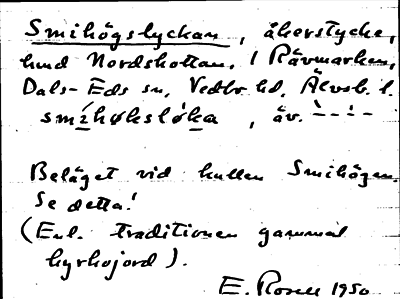 Smihögslyckan, åkerstycke,
hmd Nordskottan, 1 Rävmarken,
Dals-Eds sn, Vedbo hd, Älvsb. l.
smíhøksløka, äv. `--´-
Beläget vid kullen Smihögen.
Se detta!
(Enl. traditionen gammal
kyrkojord).
E. Rosell 1950